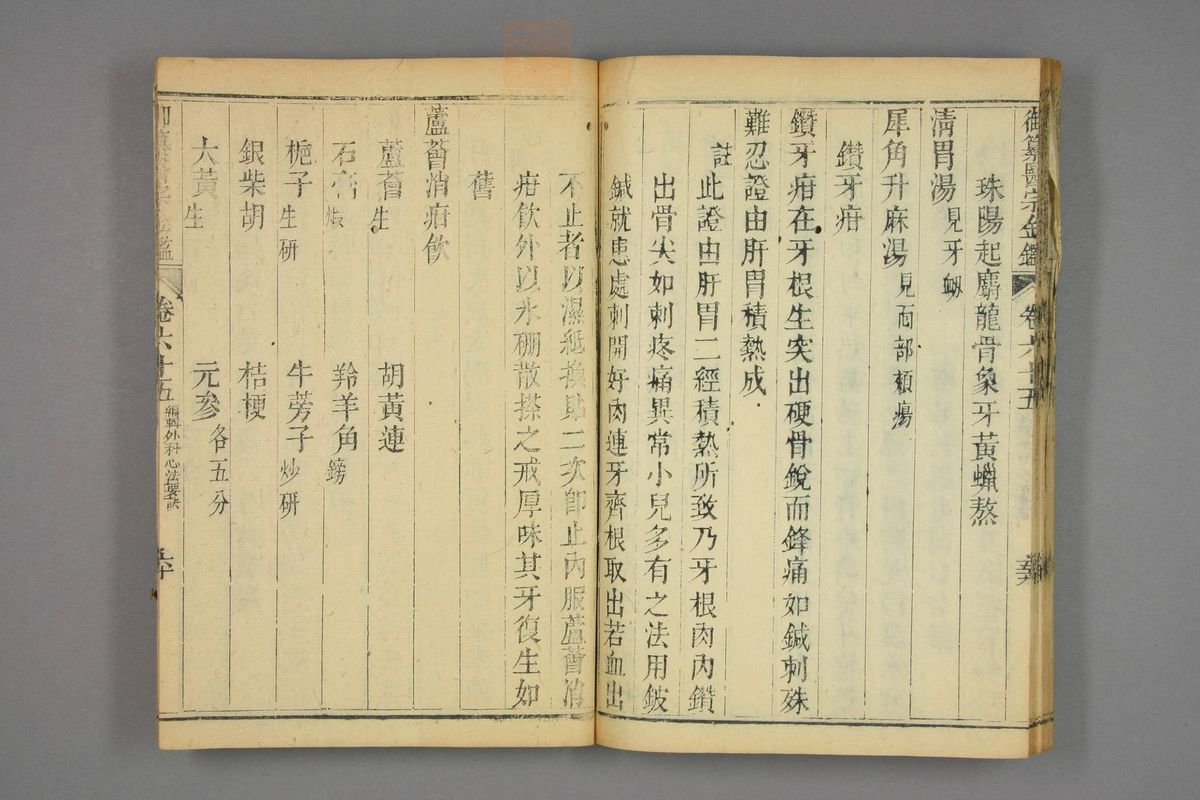 御纂醫宗金鑑 卷六十五
珠陽起麝龍骨象牙黃蠟熬
清胃湯 見牙衄
犀角升麻湯 見面部頰瘍
鑽牙疳
鑽牙疳在牙根生突出硬骨銳而鋒痛如鍼刺殊
難忍證由肝胃積熱成
註 此證由肝胃二經積熱所致乃牙根肉內鑽
出骨尖如刺疼痛異常小兒多有之法用鈹
鍼就患處刺開好肉連牙齊根取出若血出
不止者以濕紙換貼二次卽止內服蘆薈消
疳飲外以氷硼散搽之戒厚味其牙復生如
舊
蘆薈消疳飲
蘆薈 生 胡黃連
石膏 煅 羚羊角 鎊
梔子 生研 牛蒡子 炒研
銀柴胡 桔梗
大黃 生 元參 各五分
御纂醫宗金鑑 卷六十五 編輯外科心法要訣 六十